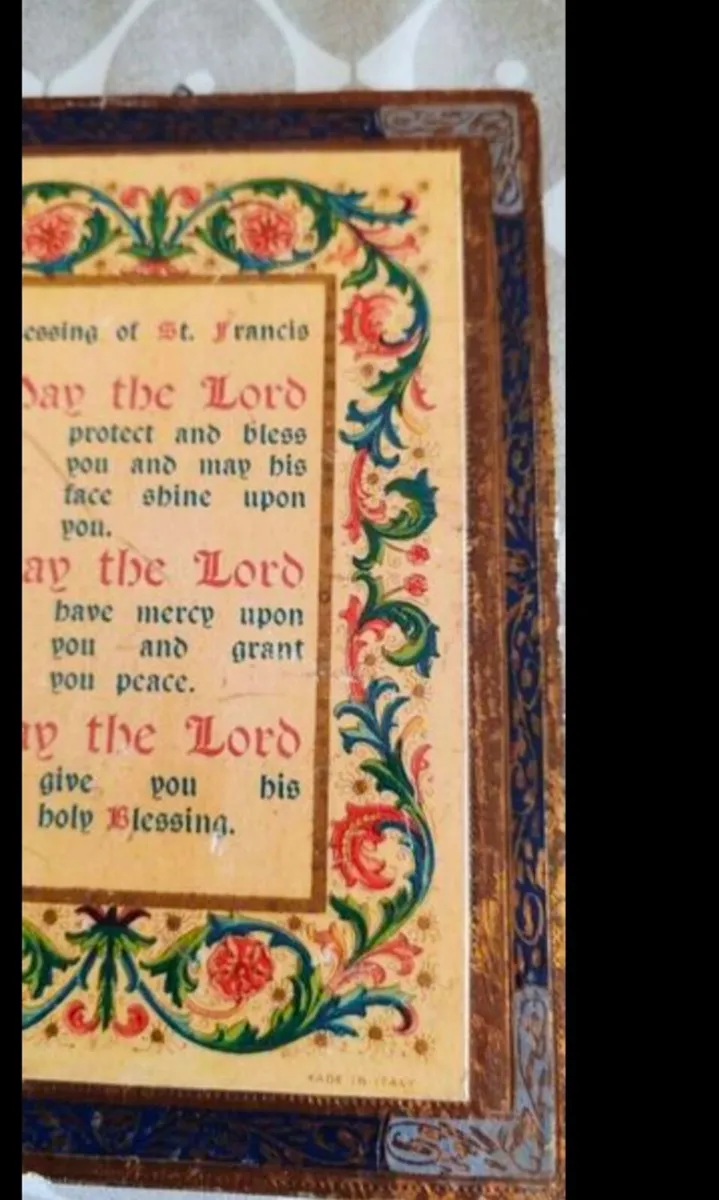 essing of St. Francis
ay the Lord
protect and bless
you and may his
face shine upon
you.
ay the Lord
have mercy upon
you and grant
you peace.
ay the Lord
give you his
holy Blessing.
MADE IN ITALY